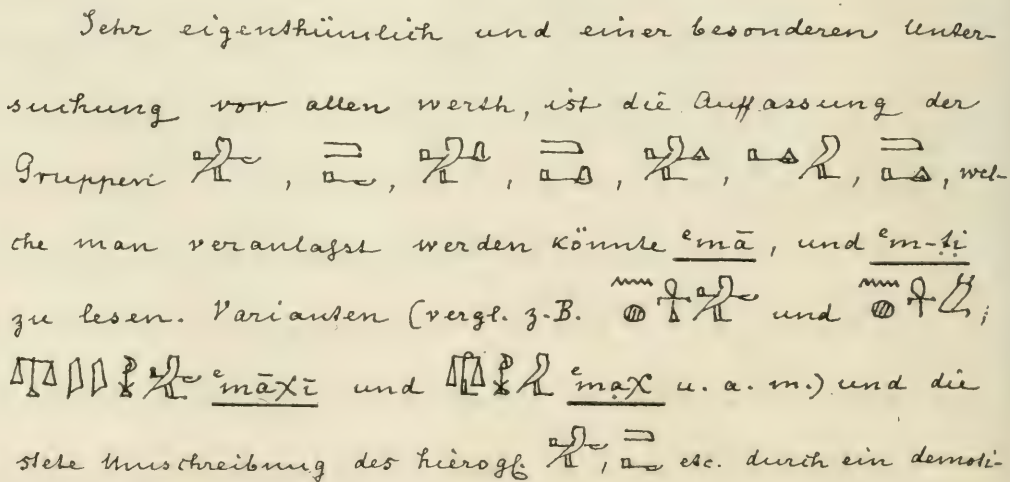 Sehr eigenthümlich und einer besonderen Unter-
suchung vor allen werth, ist die Auffassung der
Gruppen , , , , , , , wel-
che man veranlaſst werden könnte ᵉmā, und ᵉm-ṭi̭
zu lesen. Varianten (vergl. z. B. und ;
ᵉmāχī und ᵉma̭χ u. a. m.) und die
stete Umschreibung des hierogl. , etc. durch ein demoti-